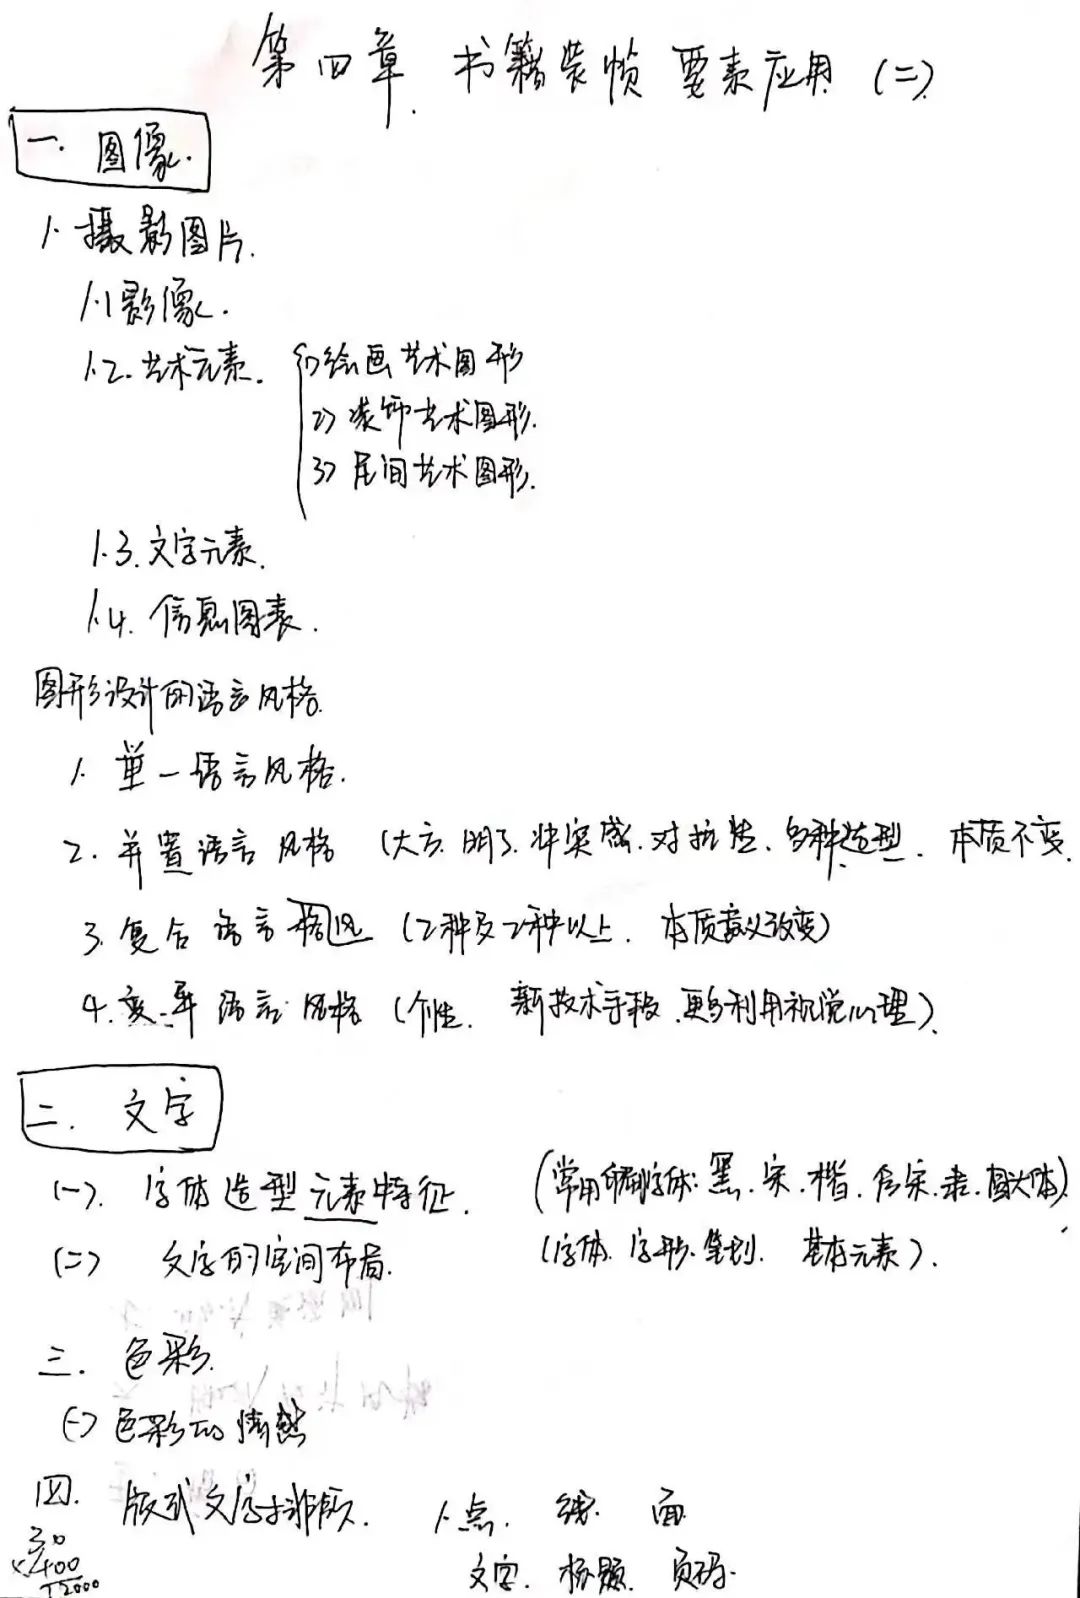 第四章 书籍装帧要素应用（二）
一. 图像.
1. 摄影图片.
1.1 影像.
1.2. 艺术元素. 1) 绘画艺术图形
2) 装饰艺术图形.
3) 民间艺术图形.
1.3. 文字元素.
1.4. 信息图表.
图形设计的语言风格.
1. 单一语言风格.
2. 并置语言风格 (大方. 明了. 冲突感. 对抗性. 多种造型. 本质不变.
3. 复合语言格风 (2种及2种以上. 本质意义改变)
4. 变异语言风格 (个性. 新技术手段. 更多利用视觉心理).
二. 文字
(一). 字体造型元素特征. (常用印刷字体: 黑. 宋. 楷. 仿宋. 隶. 圆大体)
(二) 文字的空间布局. (字体. 字形. 笔划. 基本元素).
三. 色彩.
(一) 色彩的情感
四. 版式文字排版. 1. 点. 线. 面
文字. 标题. 页码.
30
×400
12000